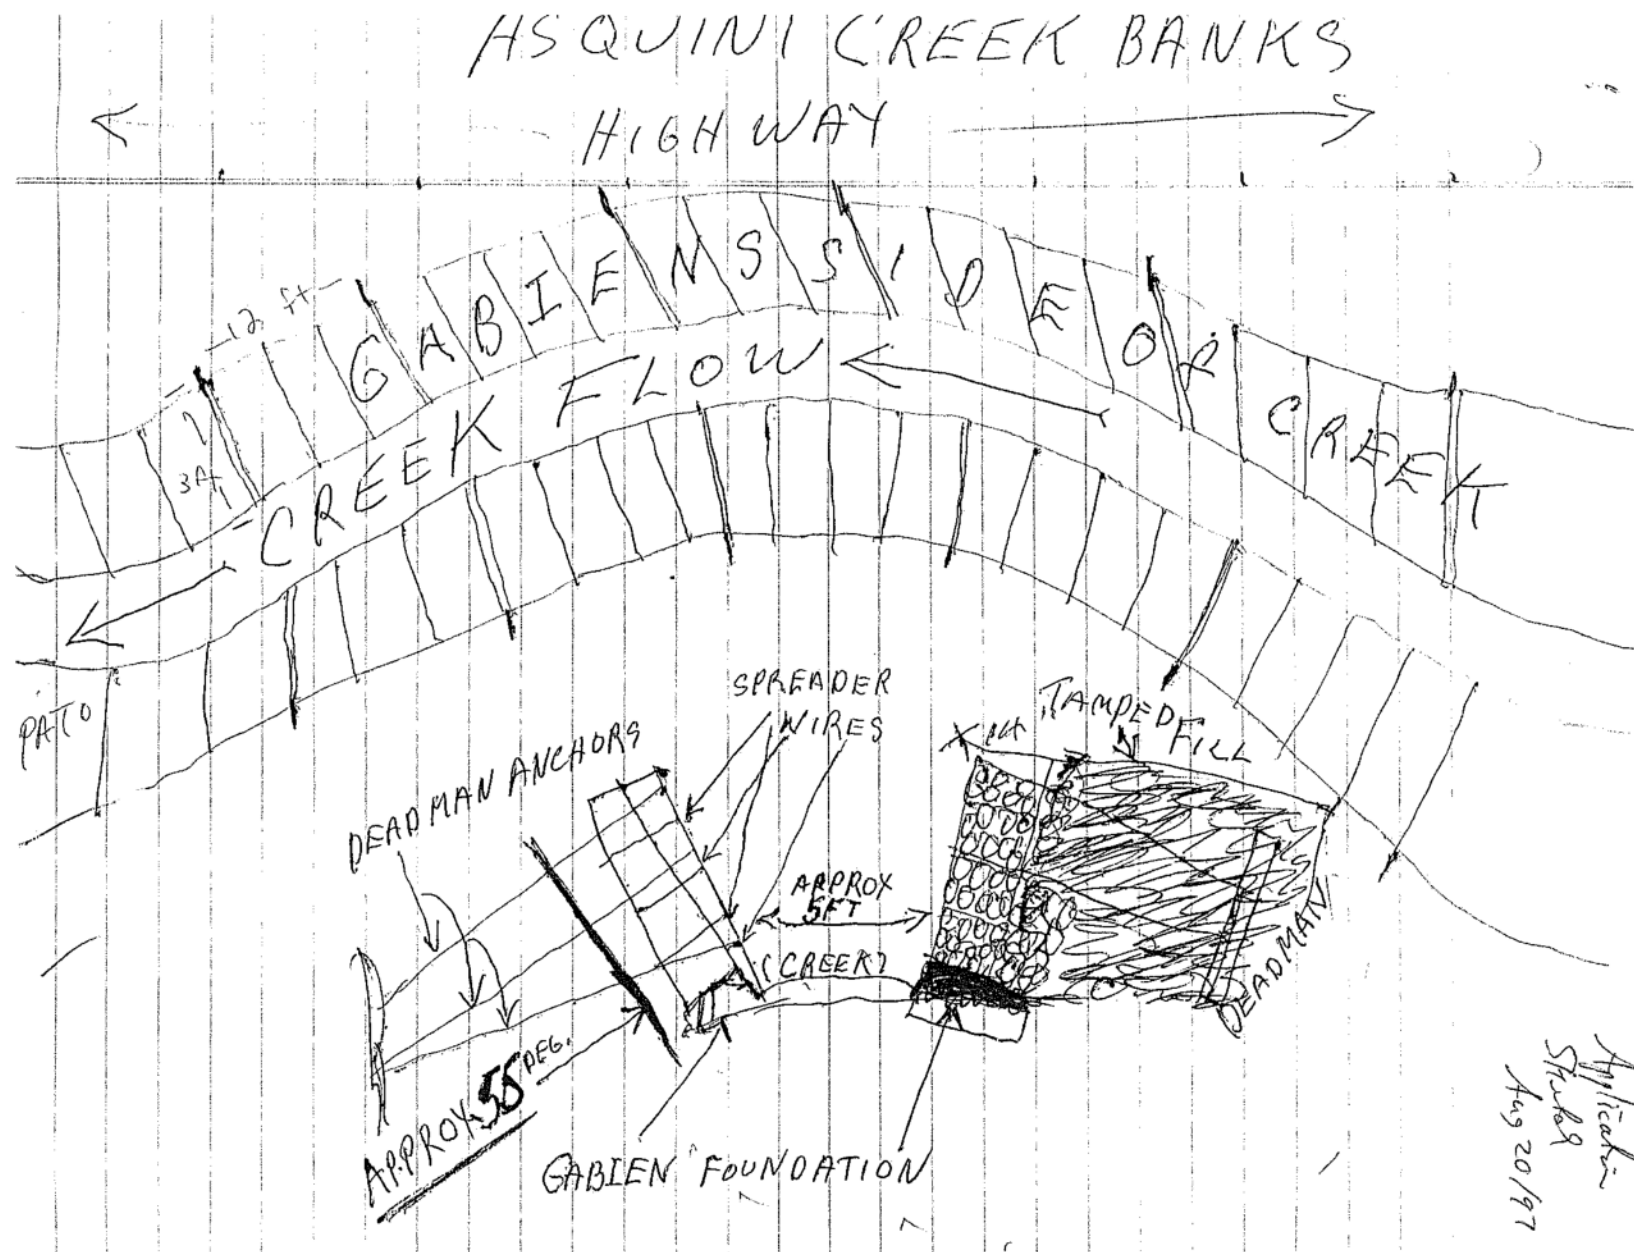 ASQUINI CREEK BANKS
HIGHWAY
12 ft
GABIENS SIDE OF CREEK
3ft
CREEK FLOW
PATO
SPREADER
WIRES
TAMPED
FILL
DEADMAN ANCHORS
APPROX
5FT
(CREEK)
DEADMAN
APPROX. 55 DEG.
GABIEN FOUNDATION
Application
Aug 20/97